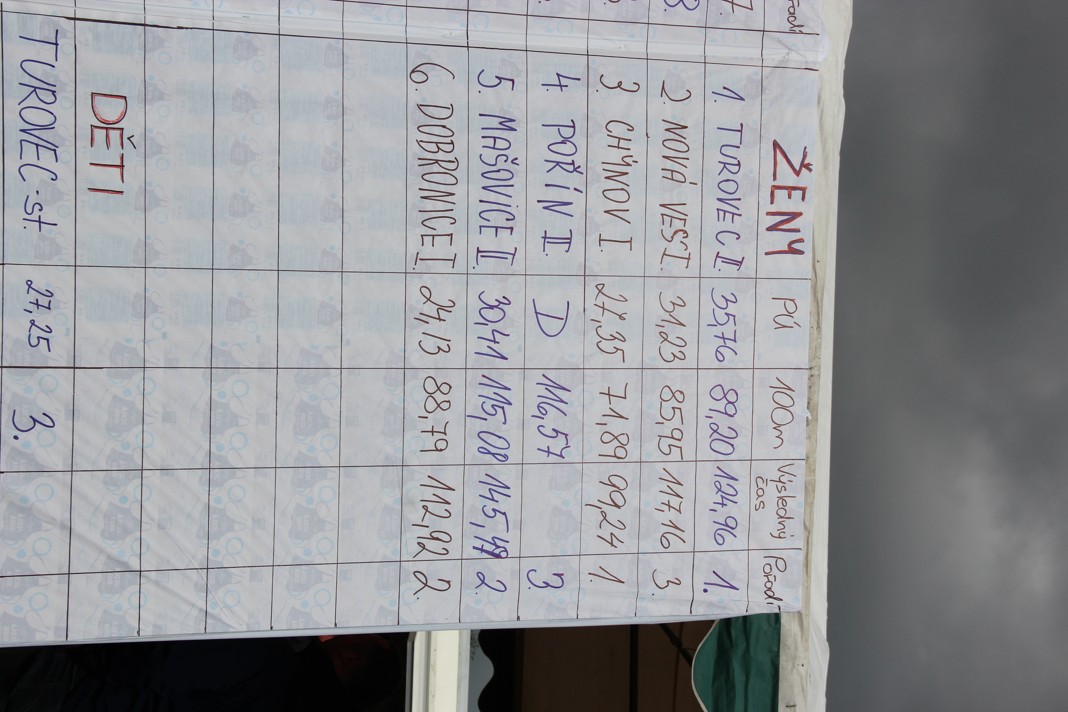 7.
8.
ŽENY PÚ 100m Výsledný čas Pořadí
1. TUROVEC II. 35,76 89,20 124,96 1.
2. NOVÁ VES I. 31,23 85,95 117,16 3.
3. CHÝNOV I. 27,35 71,89 99,24 1.
4. POŘÍN II. D 116,57 3.
5. MAŠOVICE II. 30,41 115,08 145,49 2.
6. DOBRONICE I. 24,13 88,79 112,92 2.
DĚTI
TUROVEC-st. 27,25 3.